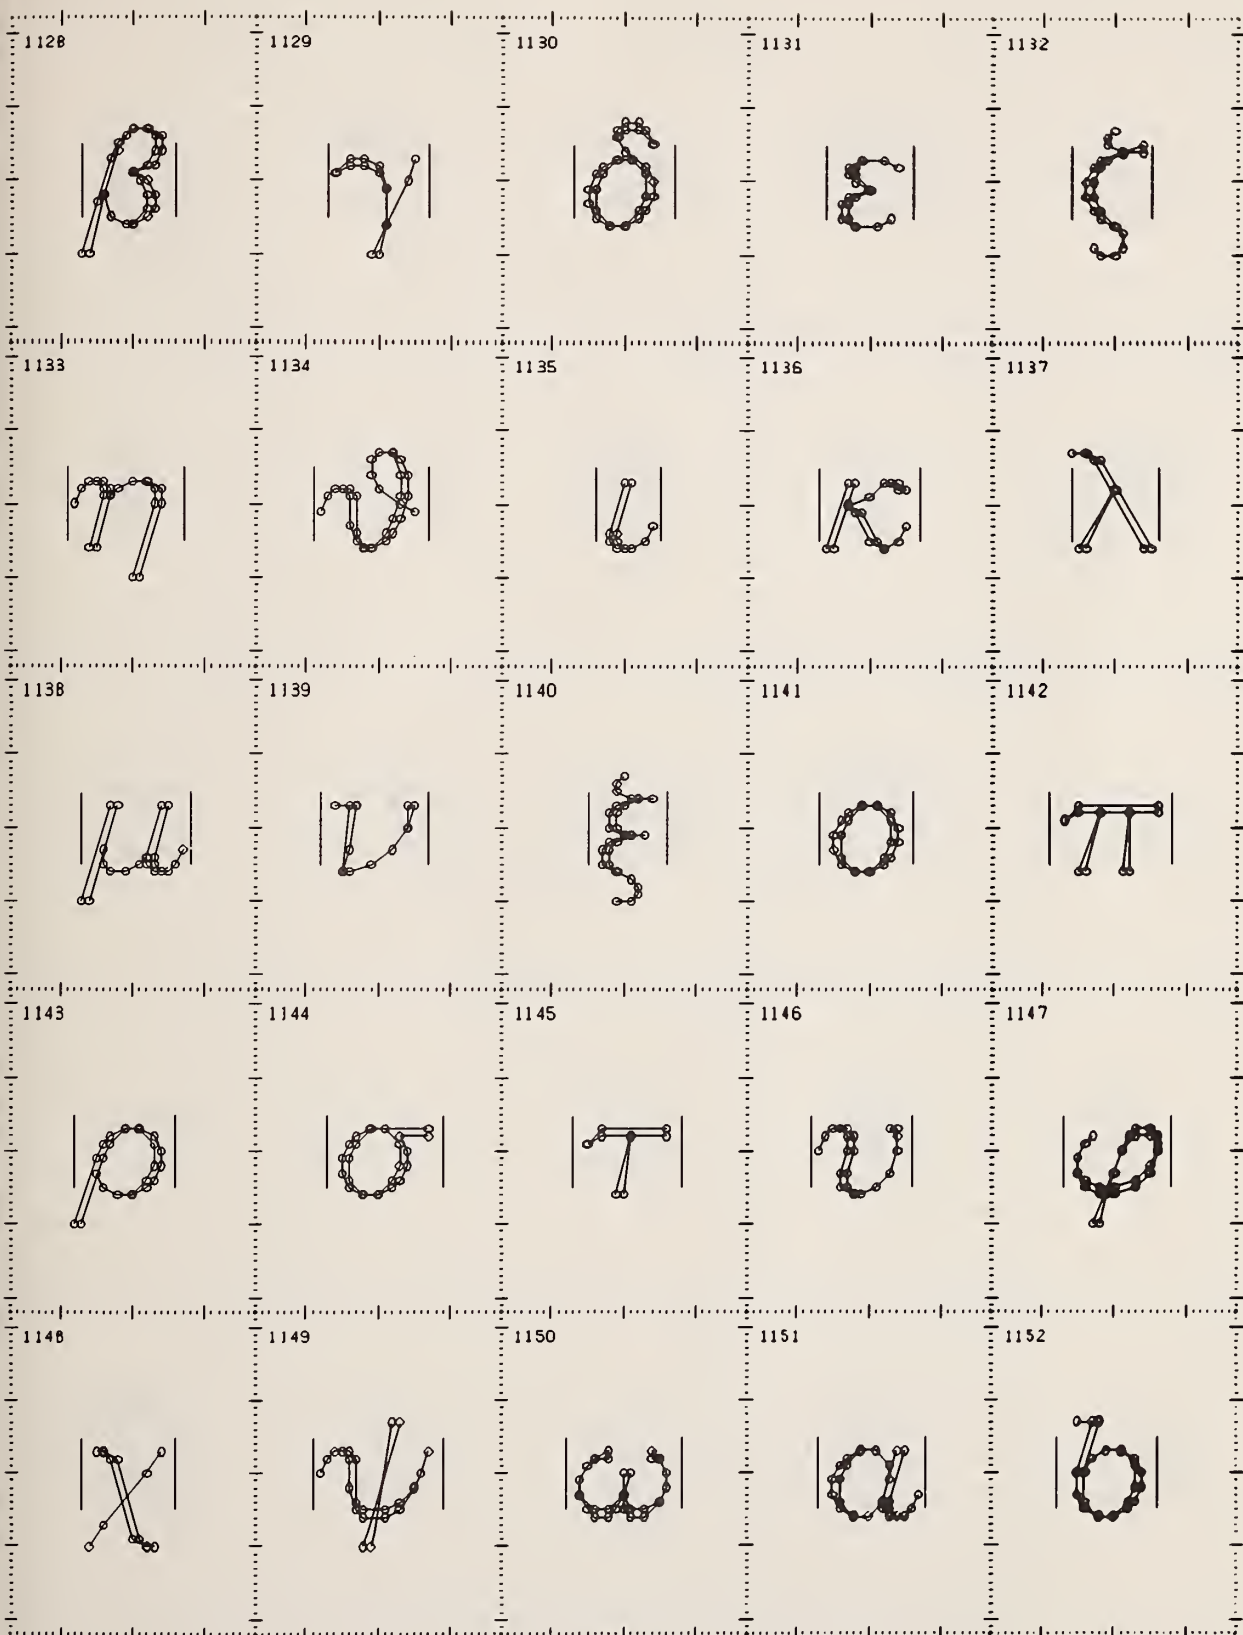 1128 1129 1130 1131 1132
β γ δ ε ζ
1133 1134 1135 1136 1137
η ϑ ι κ λ
1138 1139 1140 1141 1142
μ ν ξ ο π
1143 1144 1145 1146 1147
ρ σ τ υ φ
1148 1149 1150 1151 1152
χ ψ ω a b